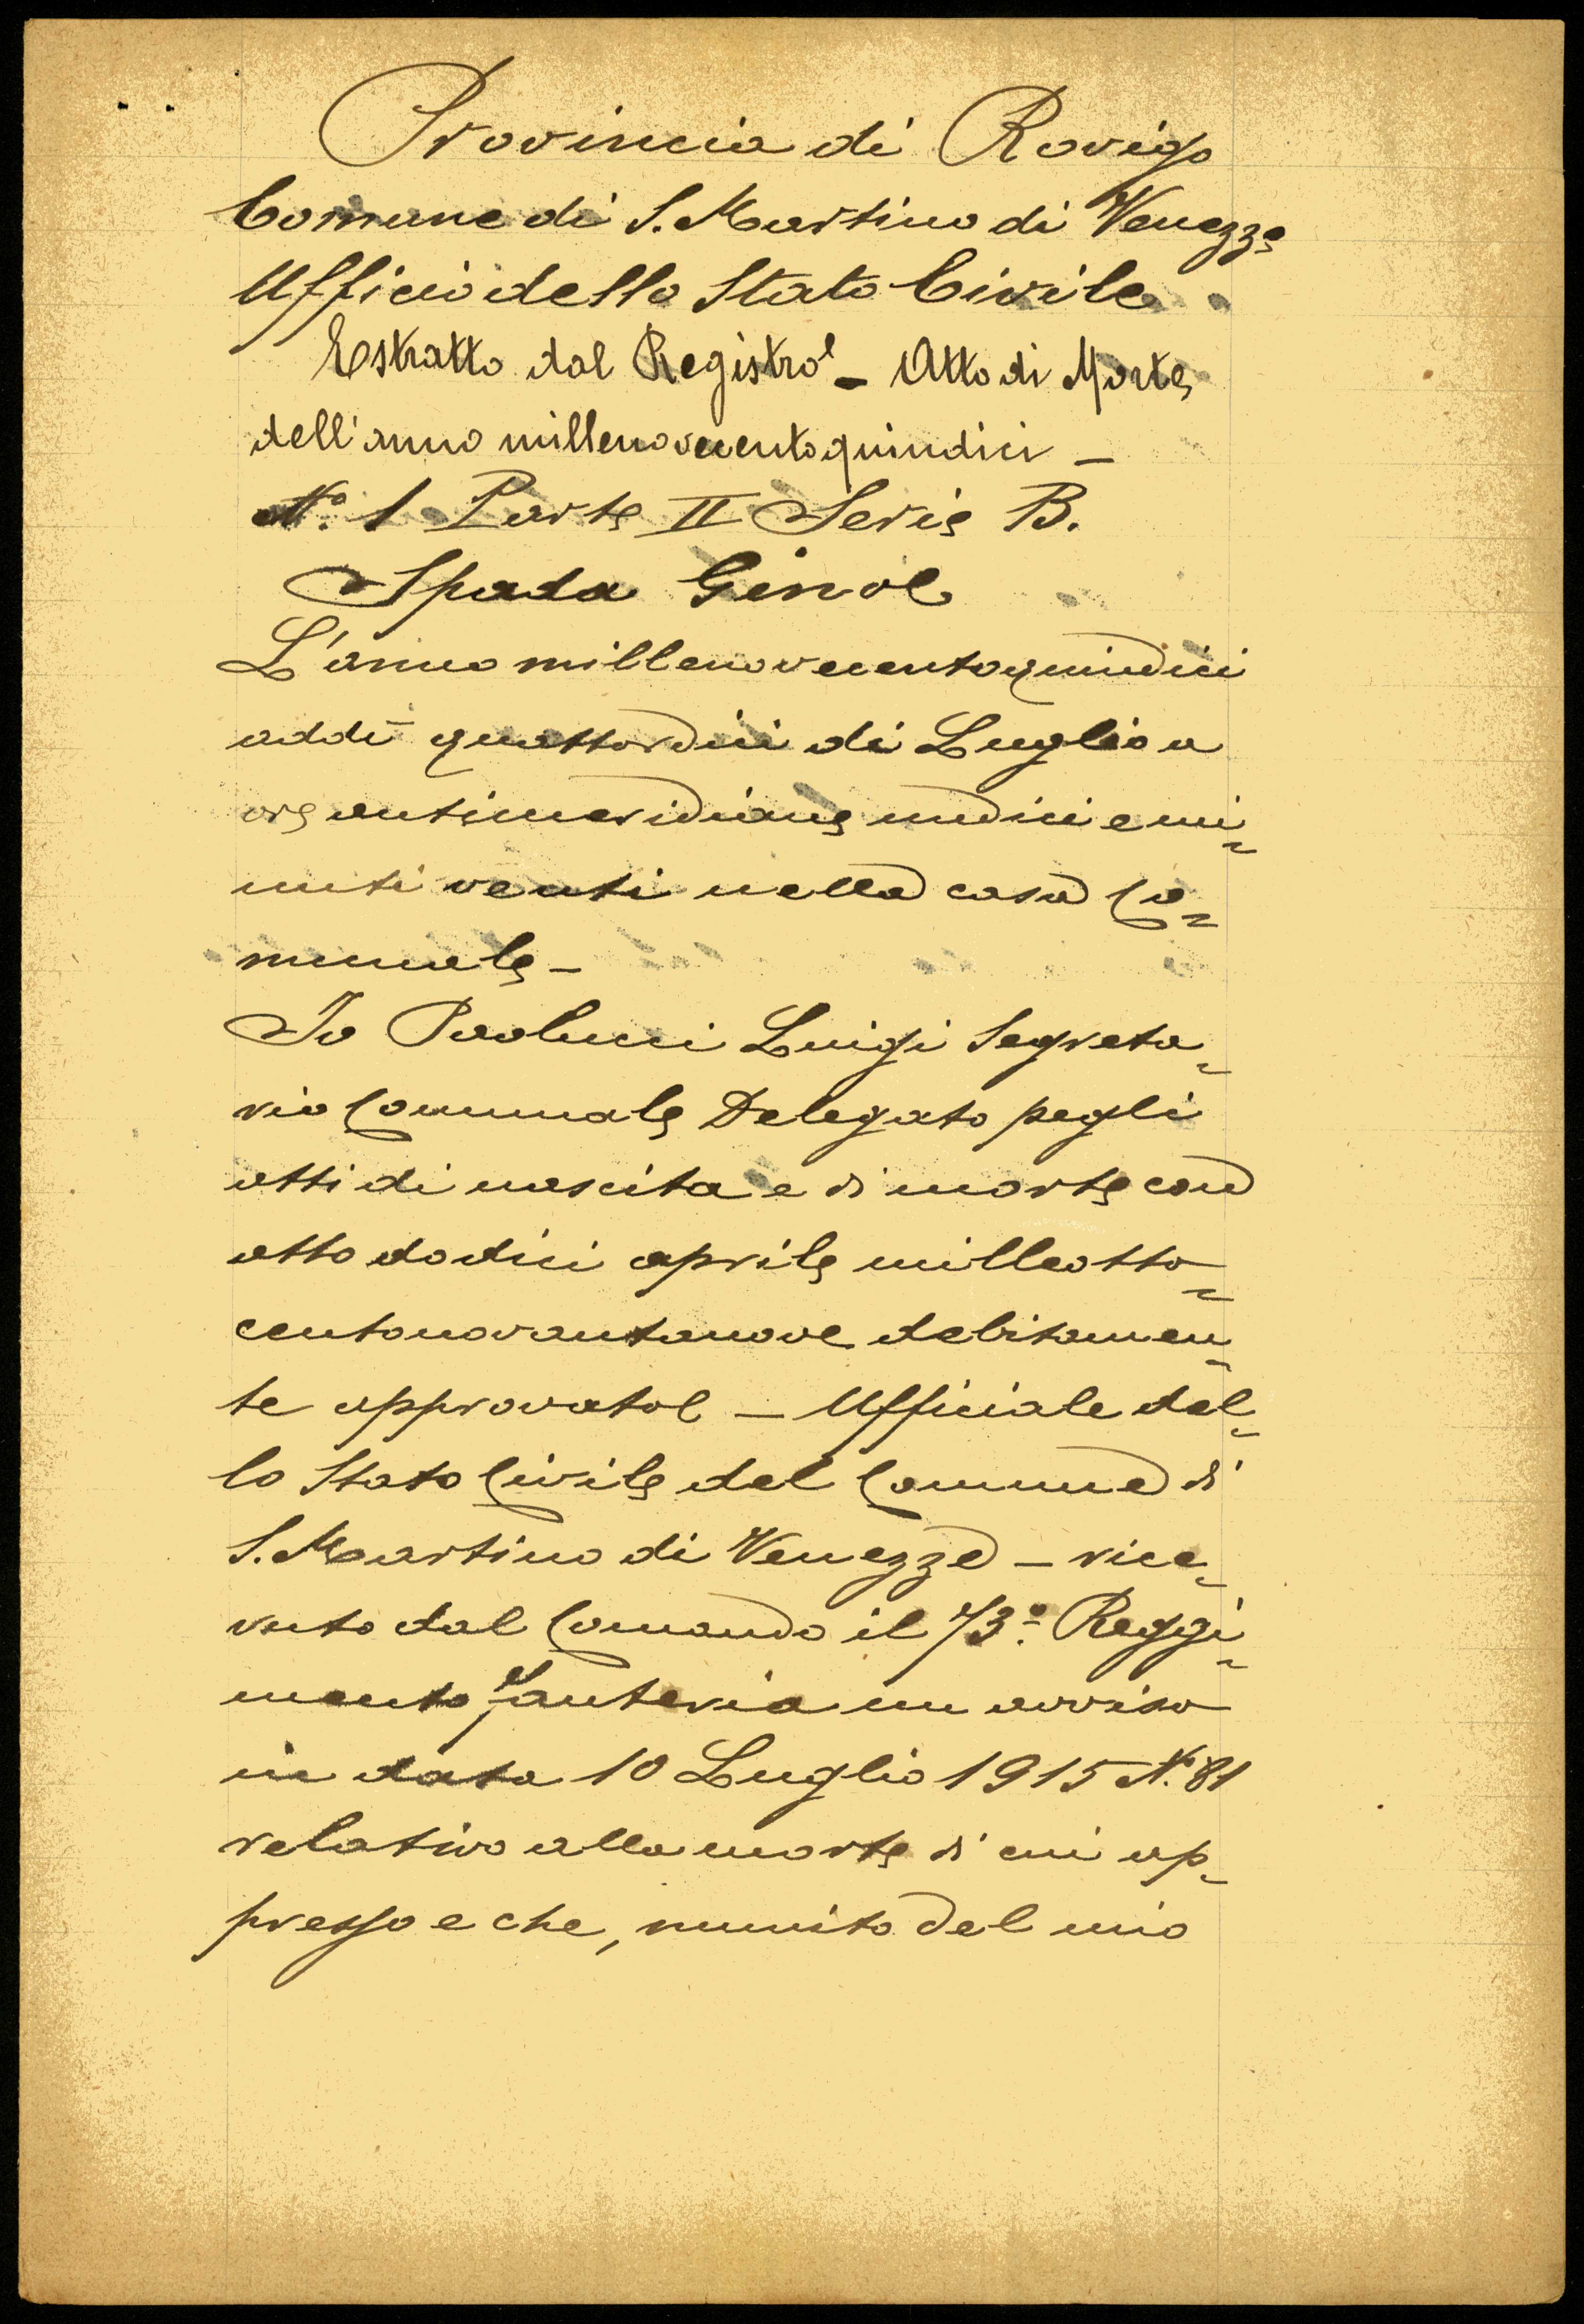 Provincia di Rovigo
Comune di S. Martino di Venezze
Ufficio dello Stato Civile
Estratto dal Registro - Atto di Morte
dell'anno millenovecentoquindici -
N.° 1 Parte II Serie B.
Spada Gino
L'anno millenovecentoquindici
addì quattordici di Luglio a
ore antimeridiane undici e mi=
nuti venti nella casa Co=
munale -
Io Paolucci Luigi Segreta=
rio Comunale Delegato pegli
atti di nascita e di morte con
atto dodici aprile milleotto=
centonovantanove debitamen=
te approvato - Ufficiale del=
lo Stato Civile del Comune di
S. Martino di Venezze - rice=
vuto dal Comando il 73° Reggi=
mento fanteria un avviso
in data 10 Luglio 1915 N. 81
relativo alla morte di cui ap=
presso e che, munito del mio